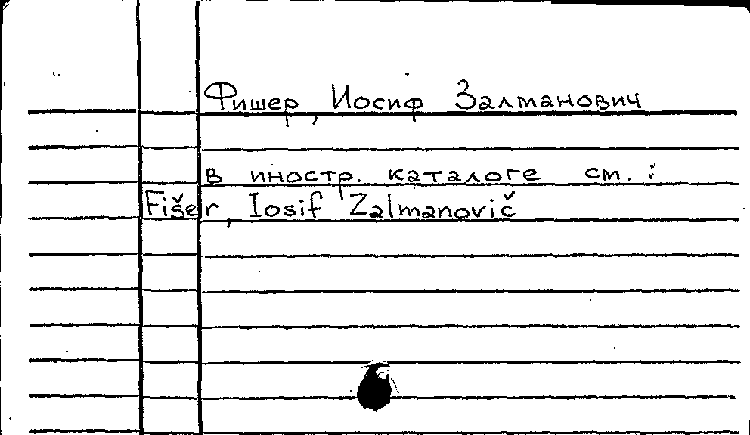 Фишер, Иосиф Залманович
в иностр. каталоге см.:
Fišer, Iosif Zalmanovič